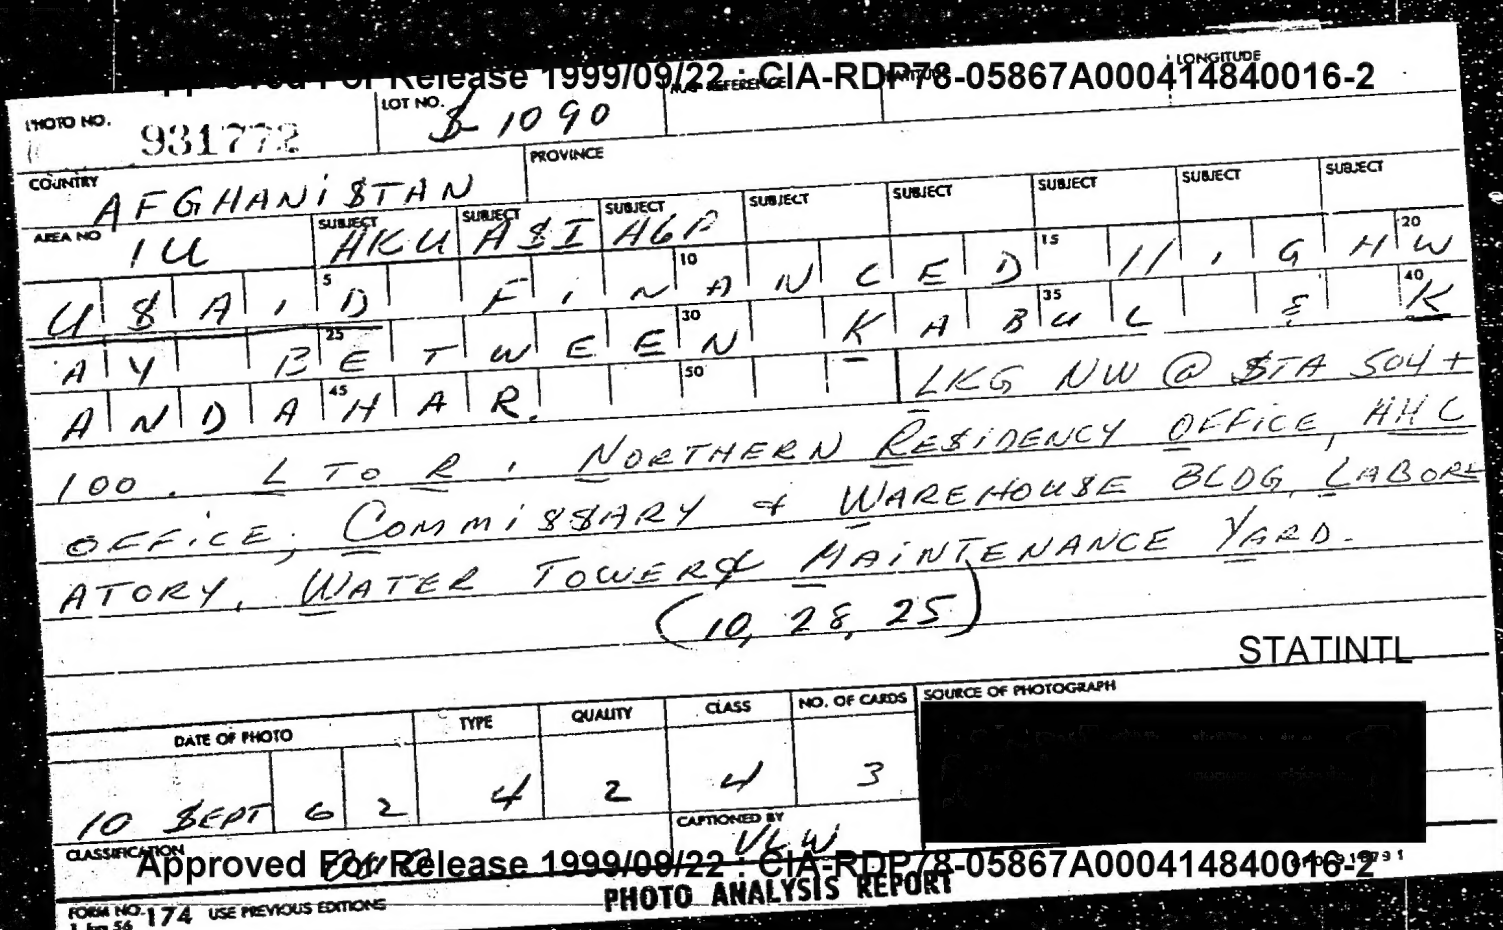 Approved For Release 1999/09/22 : CIA-RDP78-05867A000414840016-2
PHOTO NO. 931772 LOT NO. S-1090 MAP REFERENCE LATITUDE LONGITUDE
COUNTRY AFGHANISTAN PROVINCE
AREA NO 1U SUBJECT AKU SUBJECT ASI SUBJECT AGP SUBJECT SUBJECT SUBJECT SUBJECT SUBJECT
USAID FINANCED HIGHW
AY BETWEEN KABUL & K
ANDAHAR. LKG NW @ STA 504+
100. L TO R: NORTHERN RESIDENCY OFFICE, AHC
OFFICE, COMMISSARY & WAREHOUSE BLDG, LABOR-
ATORY, WATER TOWER & MAINTENANCE YARD.
(10, 28, 25)
STATINTL
DATE OF PHOTO TYPE QUALITY CLASS NO. OF CARDS SOURCE OF PHOTOGRAPH
10 SEPT 62 4 2 4 3
CLASSIFICATION CAPTIONED BY VLW
Approved For Release 1999/09/22 : CIA-RDP78-05867A000414840016-2
PHOTO ANALYSIS REPORT
FORM NO. 174 USE PREVIOUS EDITIONS
1 Jun 56